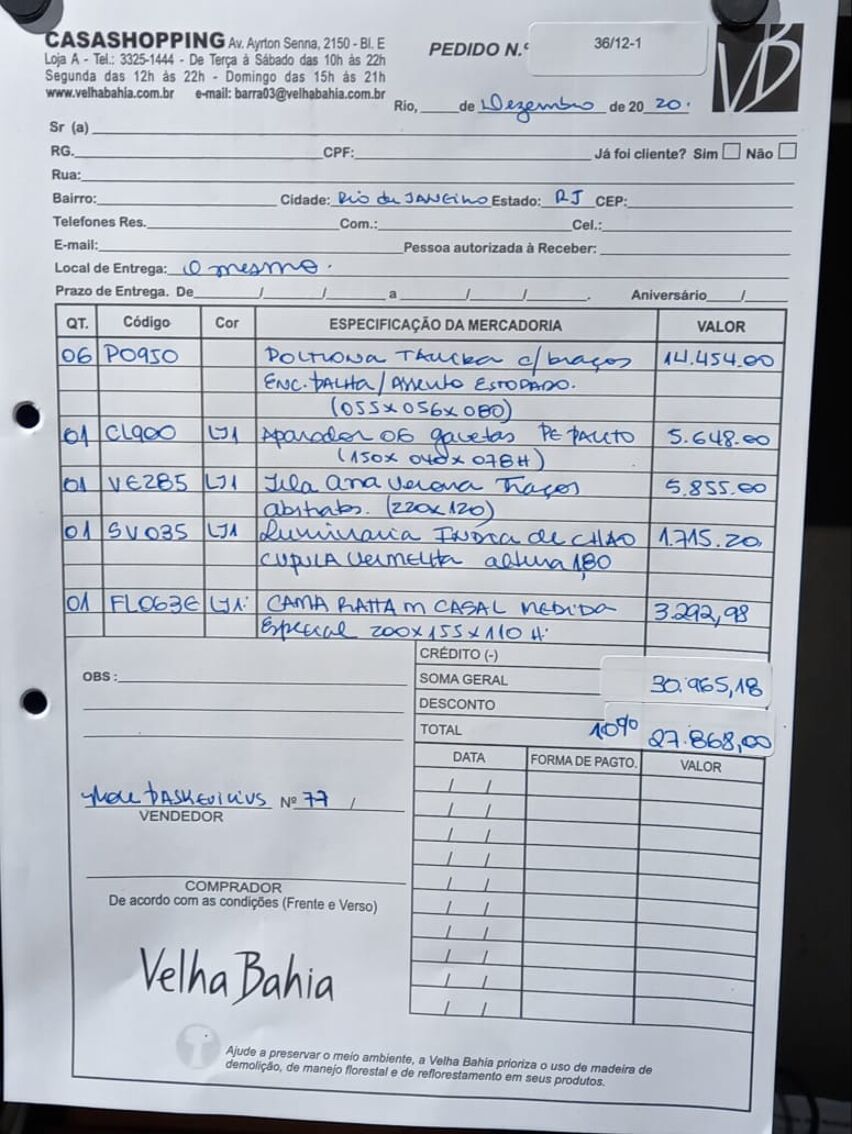 CASASHOPPING Av. Ayrton Senna, 2150 - Bl. E
Loja A - Tel.: 3325-1444 - De Terça à Sábado das 10h às 22h
Segunda das 12h às 22h - Domingo das 15h às 21h
www.velhabahia.com.br e-mail: barra03@velhabahia.com.br
PEDIDO N.º 36/12-1
VB
Rio, ____ de Dezembro de 20 20.
Sr (a)
RG. CPF: Já foi cliente? Sim Não
Rua:
Bairro: Cidade: Rio de JANEIRO Estado: RJ CEP:
Telefones Res. Com.: Cel.:
E-mail: Pessoa autorizada à Receber:
Local de Entrega: O mesmo.
Prazo de Entrega. De / / a / / . Aniversário /
QT. Código Cor ESPECIFICAÇÃO DA MERCADORIA VALOR
06 PO950 POLTRONA c/ braços 14.454.00
ENC. PALHA / Assento ESTOFADO.
(055 x 056 x 080)
01 CL900 LJ1 Aparador 06 gavetas PE PALITO 5.648.00
(150 x 040 x 078 H)
01 VE285 LJ1 Tela Ana Verona Traços 5.855.00
abstratos. (220x120)
01 SV035 LJ1 Luminaria de CHÃO 1.715.20,
CUPULA VERMELHA altura 1,80
01 FL063E LJ1: CAMA RATTAM CASAL MEDIDA 3.292,98
Especial 200x155x110 H.
CRÉDITO (-)
OBS: SOMA GERAL 30.965,18
DESCONTO
TOTAL 10% 27.868,00
DATA FORMA DE PAGTO. VALOR
PASKEVICIUS Nº 77 /
VENDEDOR
COMPRADOR
De acordo com as condições (Frente e Verso)
Velha Bahia
Ajude a preservar o meio ambiente, a Velha Bahia prioriza o uso de madeira de
demolição, de manejo florestal e de reflorestamento em seus produtos.